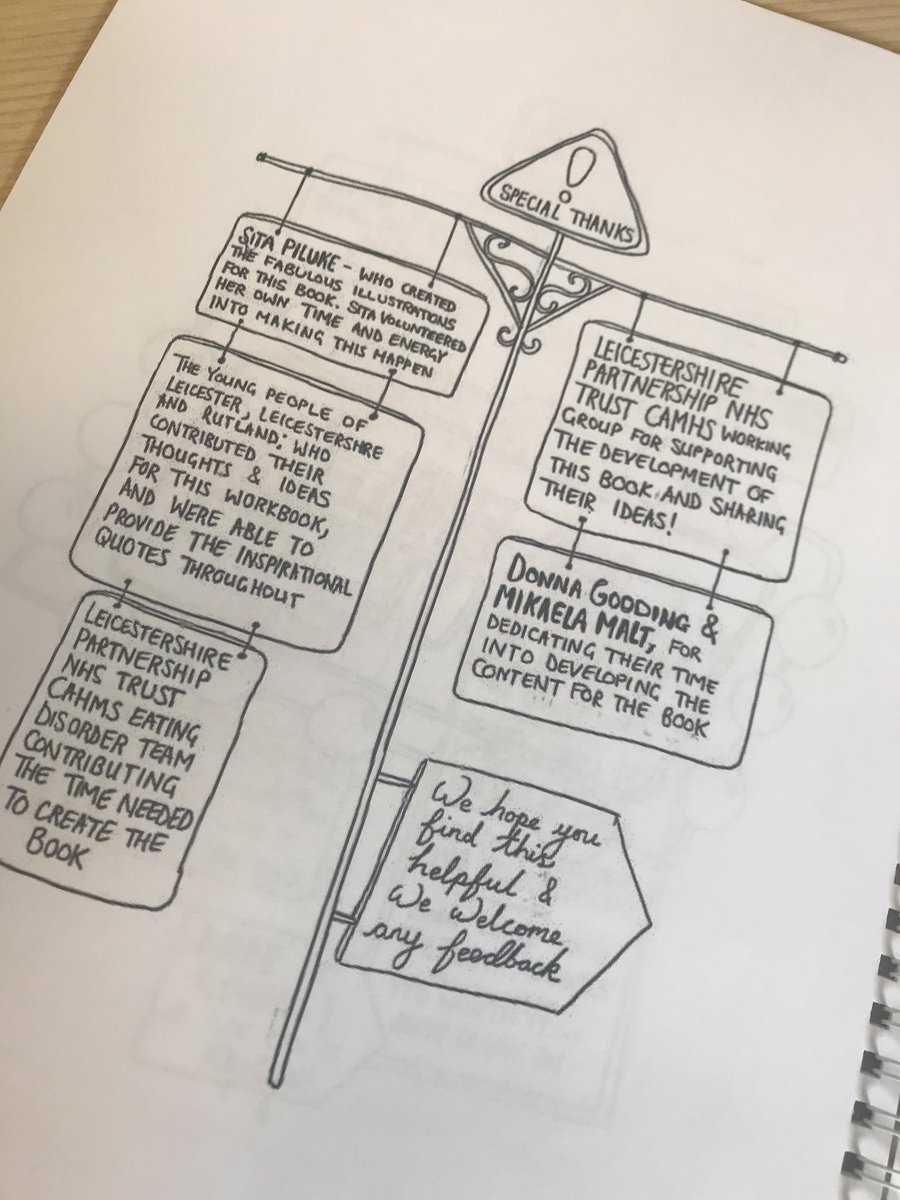 SPECIAL THANKS
SITA PILUKE - WHO CREATED
THE FABULOUS ILLUSTRATIONS
FOR THIS BOOK. SITA VOLUNTEERED
HER OWN TIME AND ENERGY
INTO MAKING THIS HAPPEN
THE YOUNG PEOPLE OF
LEICESTER, LEICESTERSHIRE
AND RUTLAND; WHO
CONTRIBUTED THEIR
THOUGHTS & IDEAS
FOR THIS WORKBOOK,
AND WERE ABLE TO
PROVIDE THE INSPIRATIONAL
QUOTES THROUGHOUT
LEICESTERSHIRE
PARTNERSHIP
NHS TRUST
CAHMS EATING
DISORDER TEAM
CONTRIBUTING
THE TIME NEEDED
TO CREATE THE
BOOK
LEICESTERSHIRE
PARTNERSHIP NHS
TRUST CAMHS WORKING
GROUP FOR SUPPORTING
THE DEVELOPMENT OF
THIS BOOK AND SHARING
THEIR IDEAS!
DONNA GOODING &
MIKAELA MALT, FOR
DEDICATING THEIR TIME
INTO DEVELOPING THE
CONTENT FOR THE BOOK
We hope you
find this
helpful &
We Welcome
any feedback